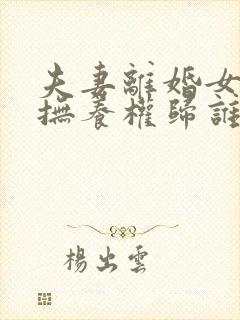 夫妻離婚女
撫養權歸誰
楊出雲